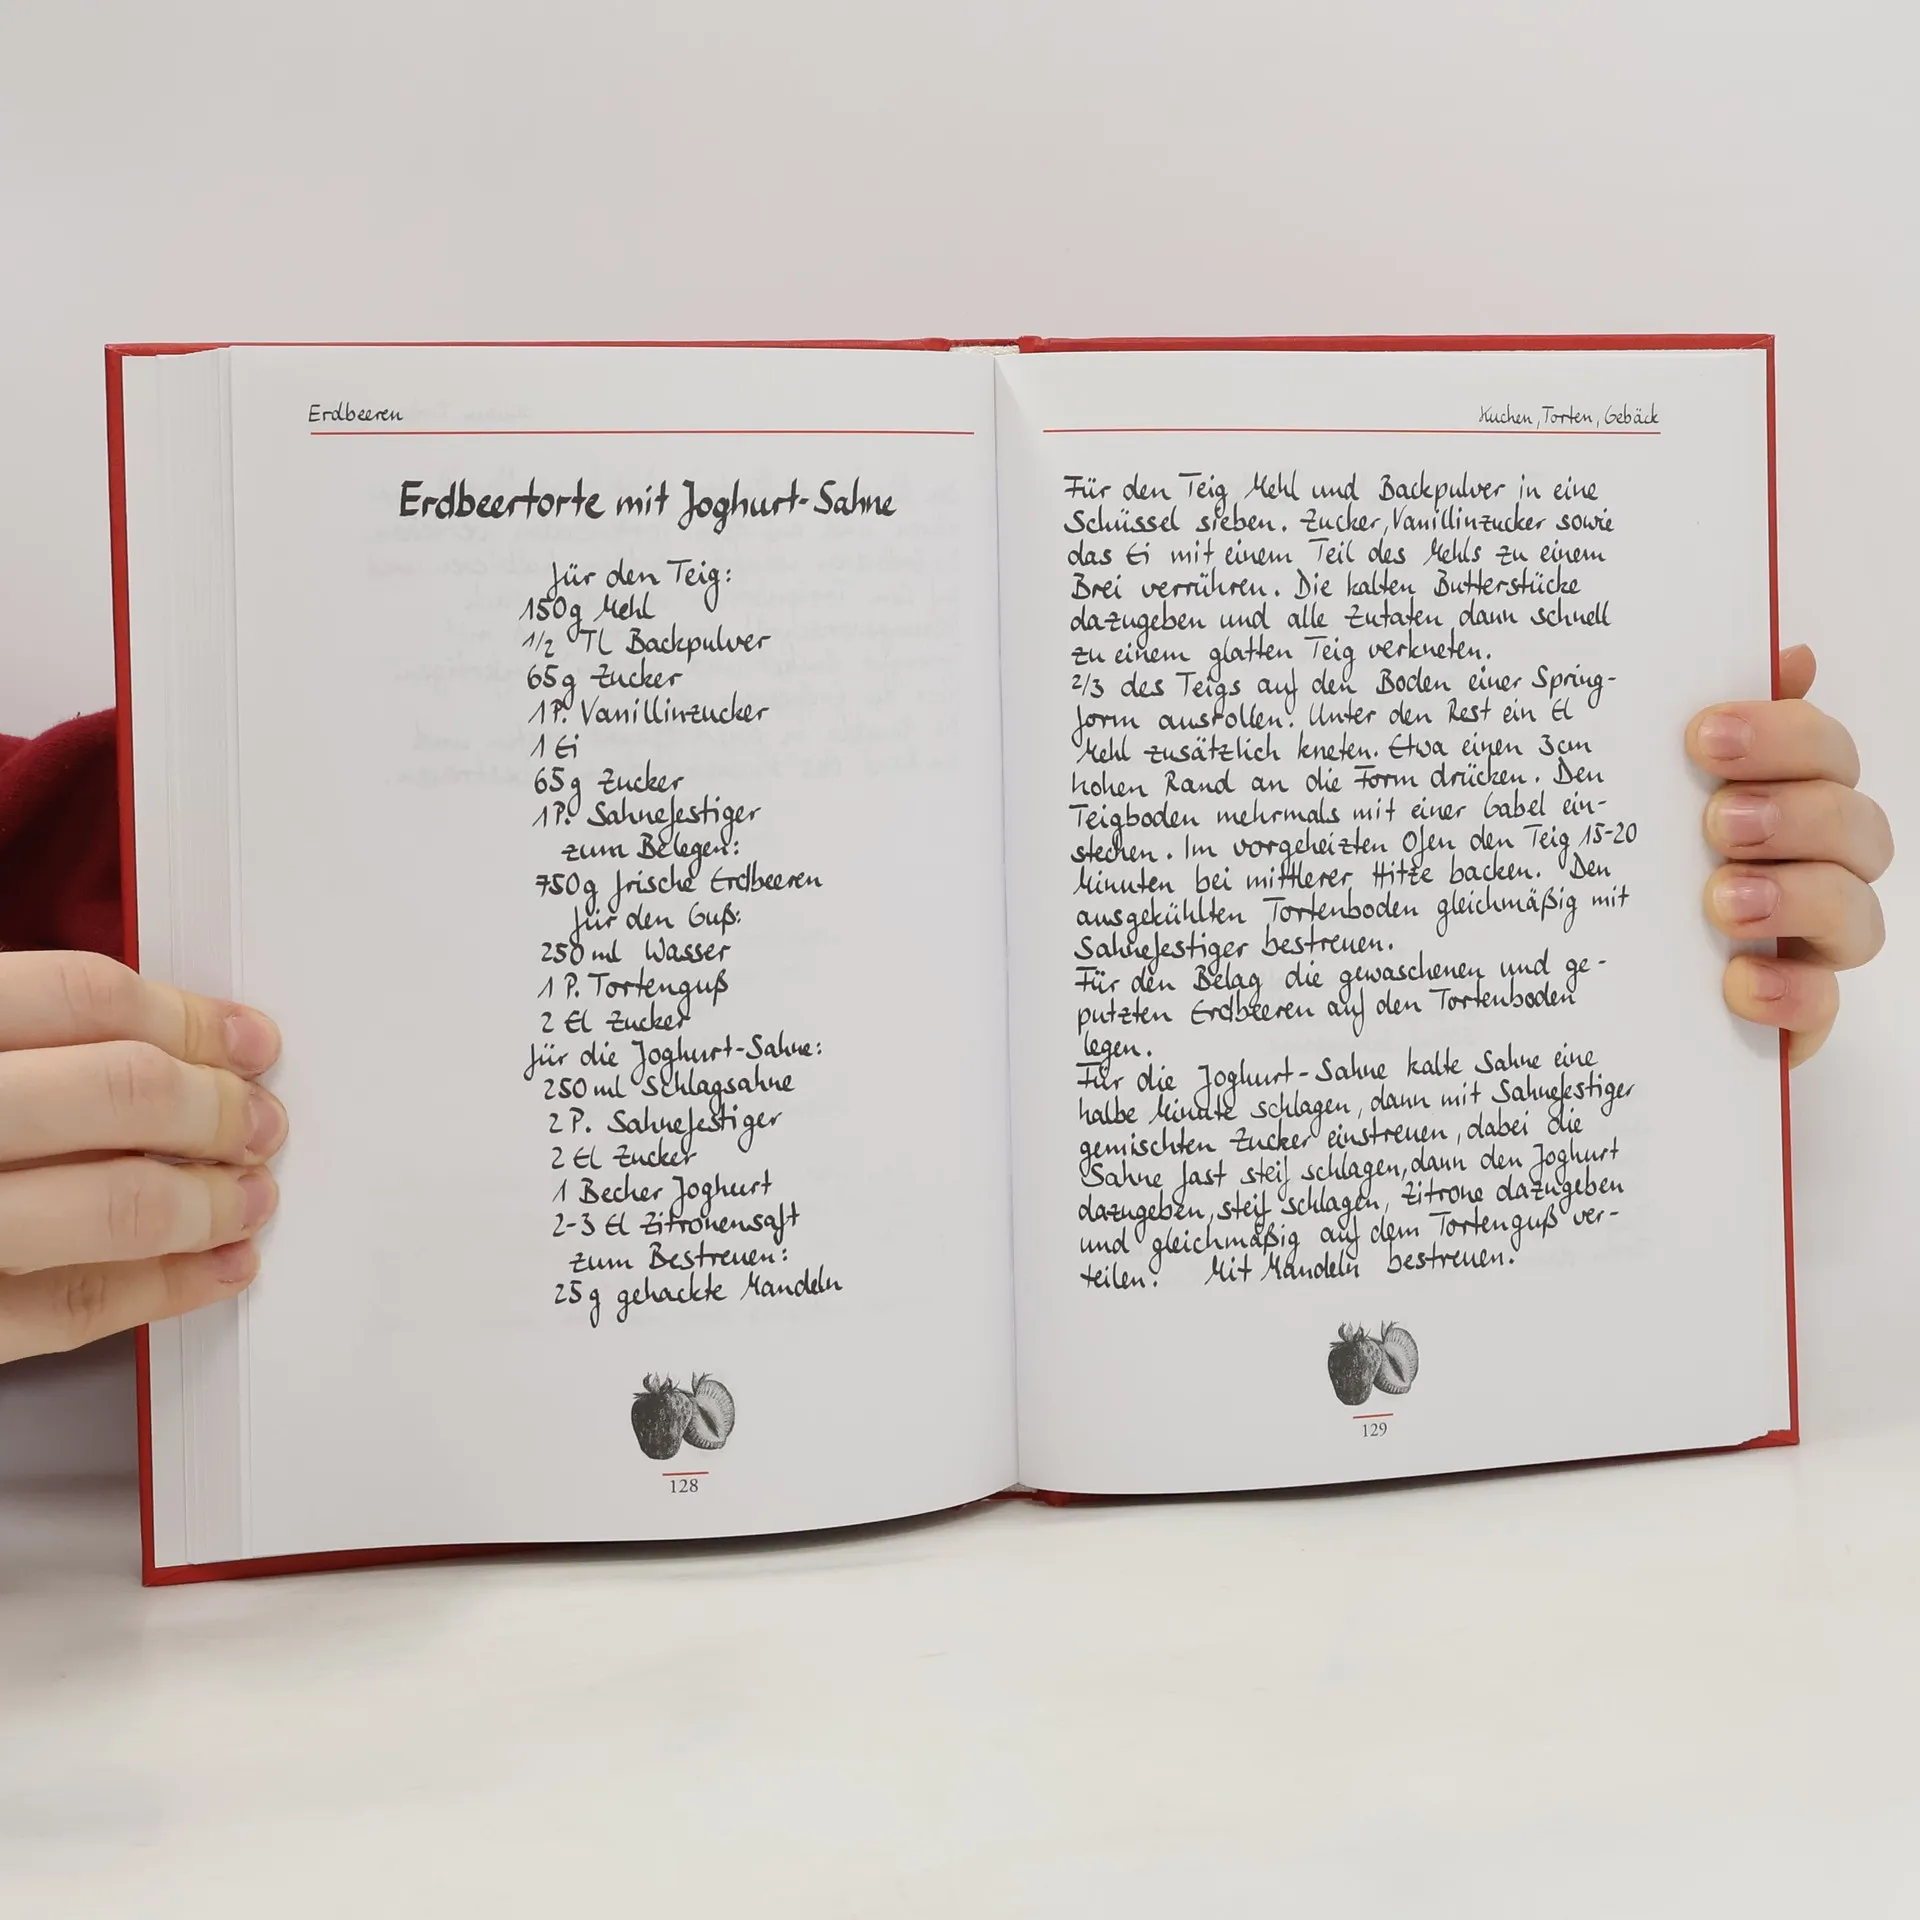 Erdbeeren
Erdbeertorte mit Joghurt-Sahne
für den Teig:
150g Mehl
1/2 Tl Backpulver
65g Zucker
1P. Vanillinzucker
1 Ei
65g Zucker
1P. Sahnefestiger
zum Belegen:
750g frische Erdbeeren
für den Guß:
250 ml Wasser
1 P. Tortenguß
2 El Zucker
für die Joghurt-Sahne:
250 ml Schlagsahne
2 P. Sahnefestiger
2 El Zucker
1 Becher Joghurt
2-3 El Zitronensaft
zum Bestreuen:
25g gehackte Mandeln
128
Kuchen, Torten, Gebäck
Für den Teig Mehl und Backpulver in eine
Schüssel sieben. Zucker, Vanillinzucker sowie
das Ei mit einem Teil des Mehls zu einem
Brei verrühren. Die kalten Butterstücke
dazugeben und alle Zutaten dann schnell
zu einem glatten Teig verkneten.
2/3 des Teigs auf den Boden einer Spring-
form ausrollen. Unter den Rest ein El
Mehl zusätzlich kneten. Etwa einen 3cm
hohen Rand an die Form drücken. Den
Teigboden mehrmals mit einer Gabel ein-
stechen. Im vorgeheizten Ofen den Teig 15-20
Minuten bei mittlerer Hitze backen. Den
ausgekühlten Tortenboden gleichmäßig mit
Sahnefestiger bestreuen.
Für den Belag die gewaschenen und ge-
putzten Erdbeeren auf den Tortenboden
legen.
Für die Joghurt-Sahne kalte Sahne eine
halbe Minute schlagen, dann mit Sahnefestiger
gemischten Zucker einstreuen, dabei die
Sahne fast steif schlagen, dann den Joghurt
dazugeben, steif schlagen, Zitrone dazugeben
und gleichmäßig auf dem Tortenguß ver-
teilen. Mit Mandeln bestreuen.
129